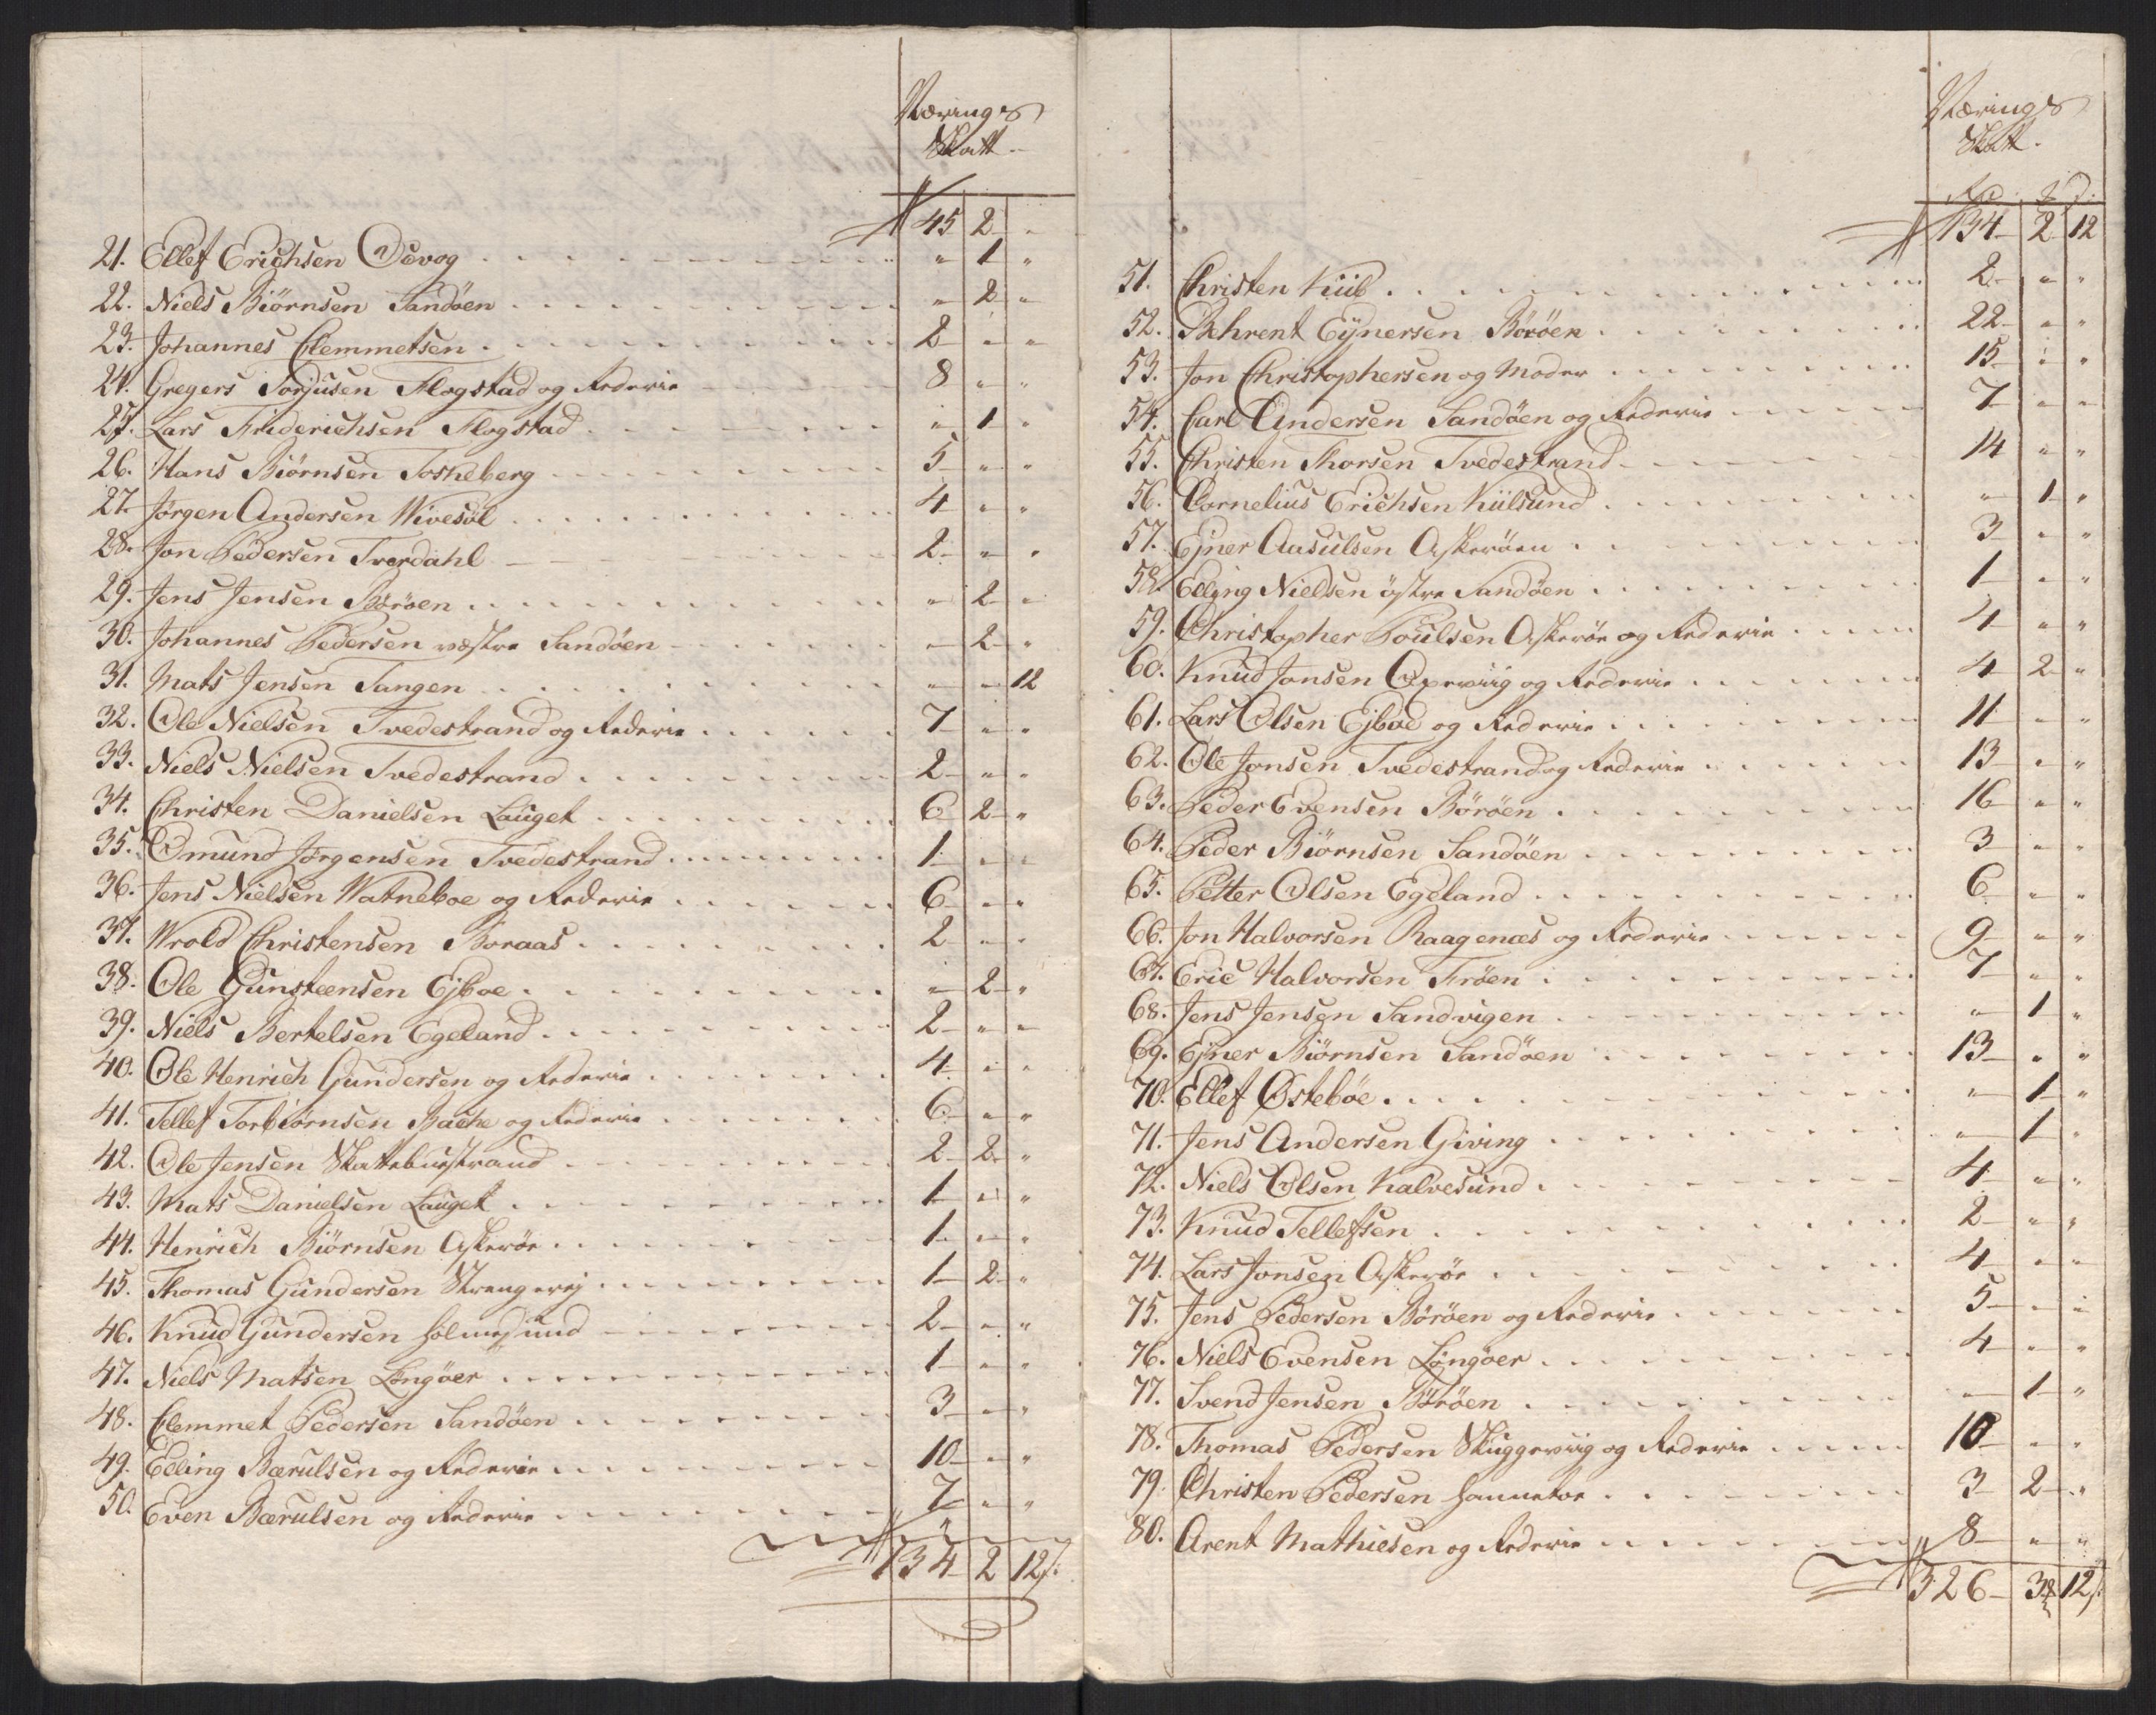 Nærings
Skatt.
45 2 "
21. Ellef Erichsen Dÿvog . . . " 1 "
22. Niels Biørnsen Sandøen . . . " 2 "
23. Johannes Clemmetsen . . . 2 " "
24. Gregers Torjusen Flogstad og Rederie 8 " "
25. Lars Friderichsen Flogstad . . . " 1 "
26. Hans Biørnsen Tosheberg . . . 5 " "
27. Jørgen Andersen Wivesøl . . . 4 " "
28. Jon Pedersen Tverdahl . . . 2 " "
29. Jens Jensen Börøen . . . " 2 "
30. Johannes Pedersen westre Sandøen . . . " 2 "
31. Mats Jensen Tangen . . . " " 12
32. Ole Nielsen Tvedestrand og Rederie . . . 7 " "
33. Niels Nielsen Tvedestrand . . . 2 " "
34. Christen Danielsen Lauget . . . 6 2 "
35. Omund Jörgensen Tvedestrand . . . 1 " "
36. Jens Nielsen Watneboe og Rederie . . . 6 " "
37. Wrold Christensen Boraas . . . 2 " "
38. Ole Gunsteensen Ejboe . . . " 2 "
39. Niels Bertelsen Egeland . . . 2 " "
40. Ole Henrich Gundersen og Rederie . . . 4 " "
41. Tellef Torbiørnsen Bache og Rederie . . . 6 " "
42. Ole Jensen Skatteboestrand . . . 2 2 "
43. Mats Danielsen Lauget . . . 1 " "
44. Henrich Biørnsen Askerøe . . . 1 " "
45. Thomas Gundersen Strengerej . . . 1 2 "
46. Knud Gundersen Holmesund . . . 2 " "
47. Niels Matsen Löngöer . . . 1 " "
48. Clemmet Pedersen Sandøen . . . 3 " "
49. Elling Bærulsen og Rederie . . . 10 " "
50. Even Bærulsen og Rederie . . . 7 " "
134 2 12 s:
Nærings
Skatt.
Rd. Z s.
134 2 12
51. Christen Kiil . . . 2 " "
52. Behrent Eÿnersen Börøen . . . 22 " "
53. Jon Christophersen og Moder . . . 15 " "
54. Carl Andersen Sandøen og Rederie . . . 7 " "
55. Christen Thorsen Tvedestrand . . . 14 " "
56. Cornelius Erichsen Kiilsund . . . " 1 "
57. Ejner Aasulsen Askerøen . . . 3 " "
58. Elling Nielsen östre Sandøen . . . 1 " "
59. Christopher Poulsen Askerøe og Rederie . . . 4 " "
60. Knud Jonsen Oxewiig og Rederie . . . 4 2 "
61. Lars Olsen Ejboe og Rederie . . . 11 " "
62. Ole Jonsen Tvedestrand og Rederie . . . 13 " "
63. Peder Evensen Börøen . . . 16 " "
64. Peder Biørnsen Sandøen . . . 3 " "
65. Petter Olsen Egeland . . . 6 " "
66. Jon Halvorsen Raagenæs og Rederie . . . 9 " "
67. Eric Halvorsen Frøen . . . 7 " "
68. Jens Jensen Sandvigen . . . " 1 "
69. Ejner Biørnsen Sandøen . . . 13 " "
70. Ellef Østebøe . . . " 1 "
71. Jens Andersen Giving . . . " 1 "
72. Niels Olsen Kalvesund . . . 4 " "
73. Knud Tellefsen . . . 2 " "
74. Lars Jonsen Askerøe . . . 4 " "
75. Jens Pedersen Börøen og Rederie . . . 5 " "
76. Niels Evensen Löngöer . . . 4 " "
77. Svend Jensen Börøen . . . " 1 "
78. Thomas Pedersen Skuggewiig og Rederie . . . 10 " "
79. Christen Pedersen Hannetoe . . . 3 2 "
80. Arent Mathiesen og Rederie . . . 8 " "
326 3 12 s: